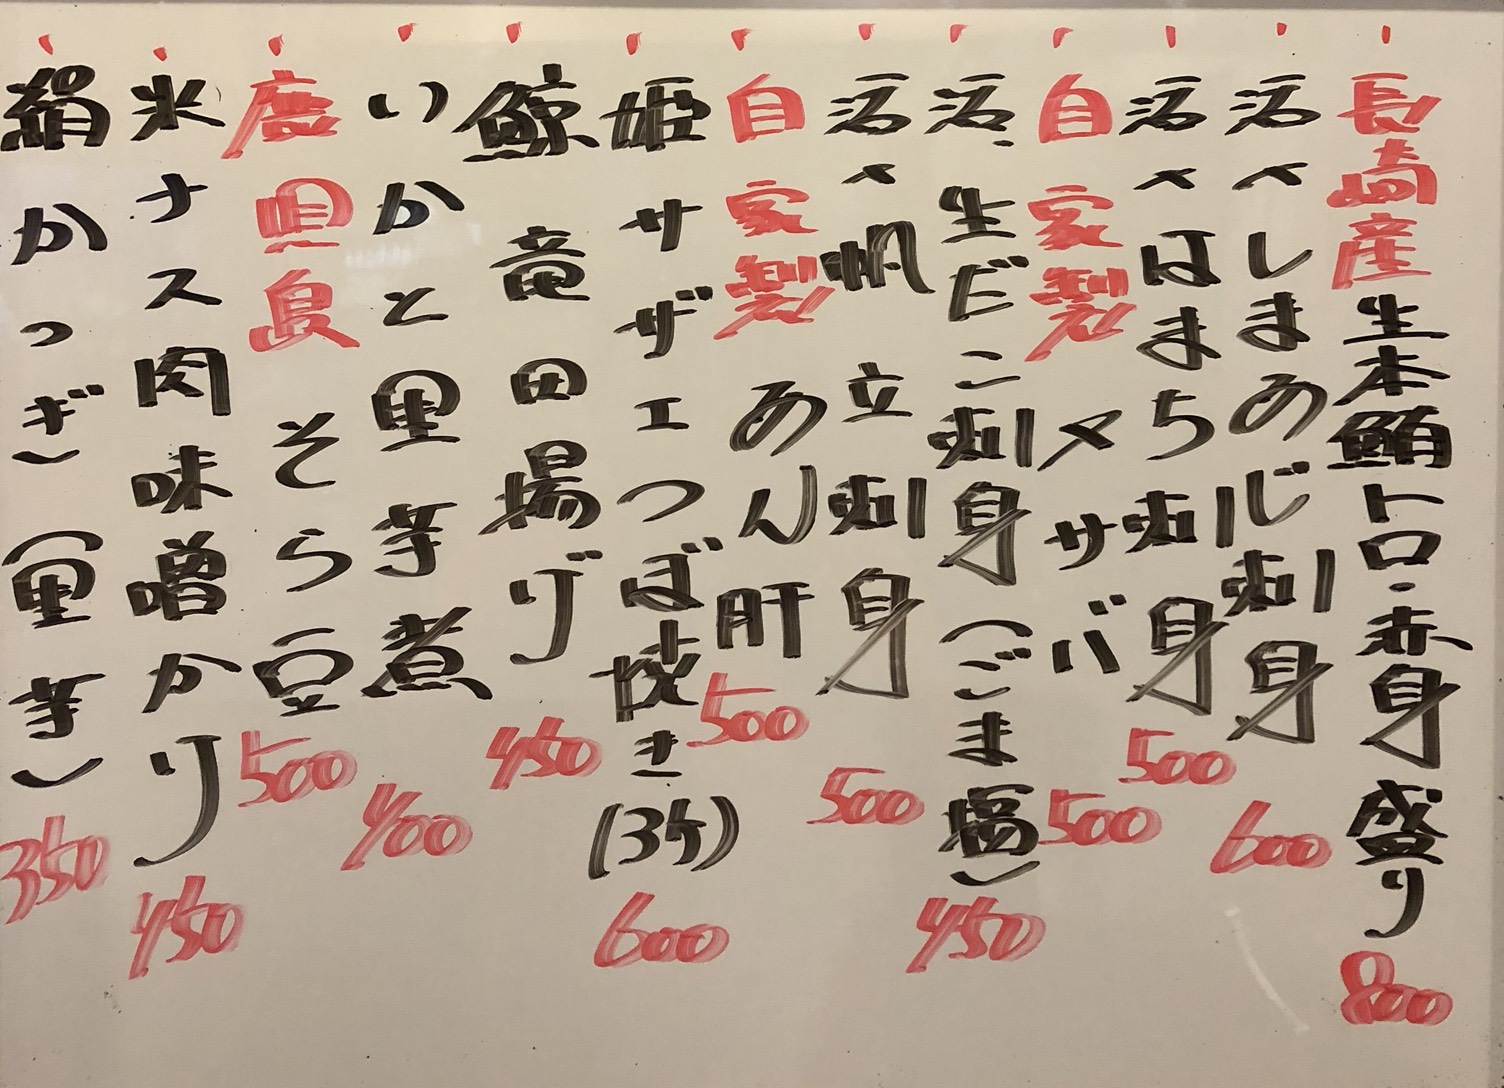 長崎産生本鮪トロ・赤身盛り 800
活〆しまあじ刺身 600
活〆はまち刺身 500
自家製〆サバ 500
活、生だこ刺身(ごま塩) 450
活〆帆立刺身 500
自家製あん肝 500
姫サザエつぼ焼き(3ケ) 600
鯨竜田揚げ 450
いかと里芋煮 400
鹿児島そら豆 500
米ナス肉味噌かけ 450
絹かつぎ(里芋) 350